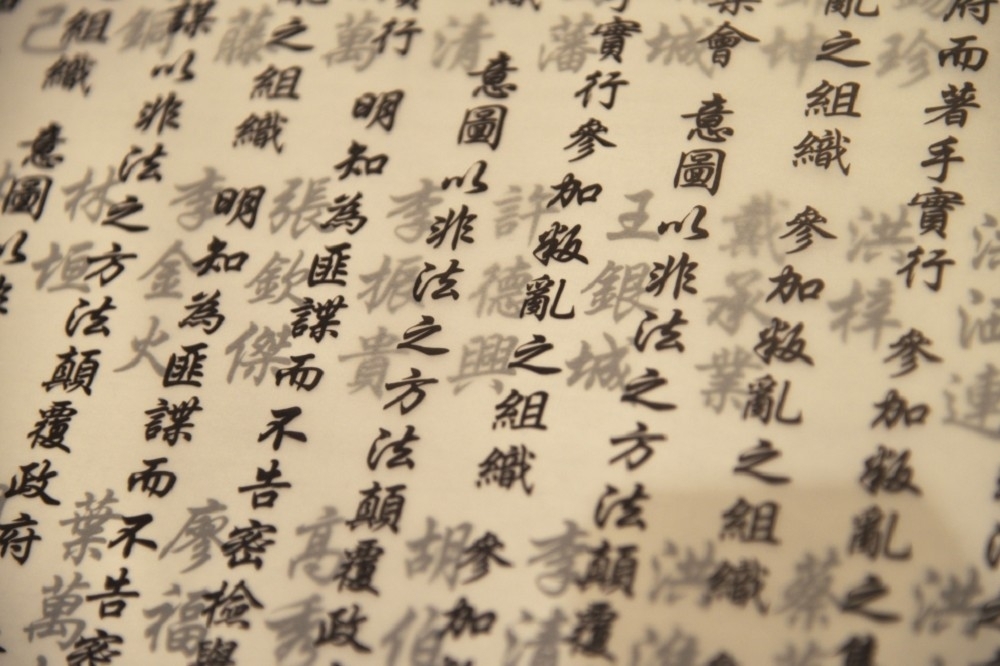 府而著手實行 參加叛亂之
亂之組織 參加叛亂之組織
集會 意圖以非法之方法顛覆
實行參加叛亂之組織 參加
意圖以非法之方法顛覆政
行 明知為匪諜而不告密檢舉
之組織 明知為匪諜而不告密
諜以非法之方法顛覆政府
組織 意圖以非
珍 洪梓 洪
坤 戴承業 蔡
城 王銀城 洪
藩 許德興 李清
清 李振貴 胡伯
萬 張欽傑 高秀
藤 李金火 廖福
銅 林垣 葉萬
己